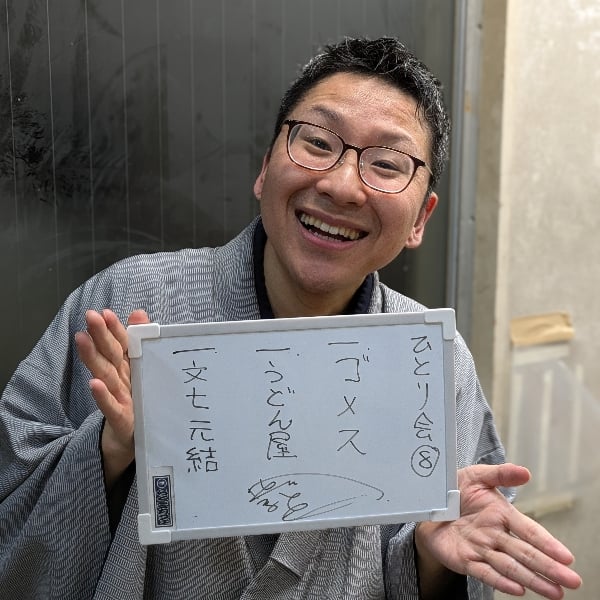 ひとり会⑧
一、ゴメス
一、うどん屋
一、文七元結